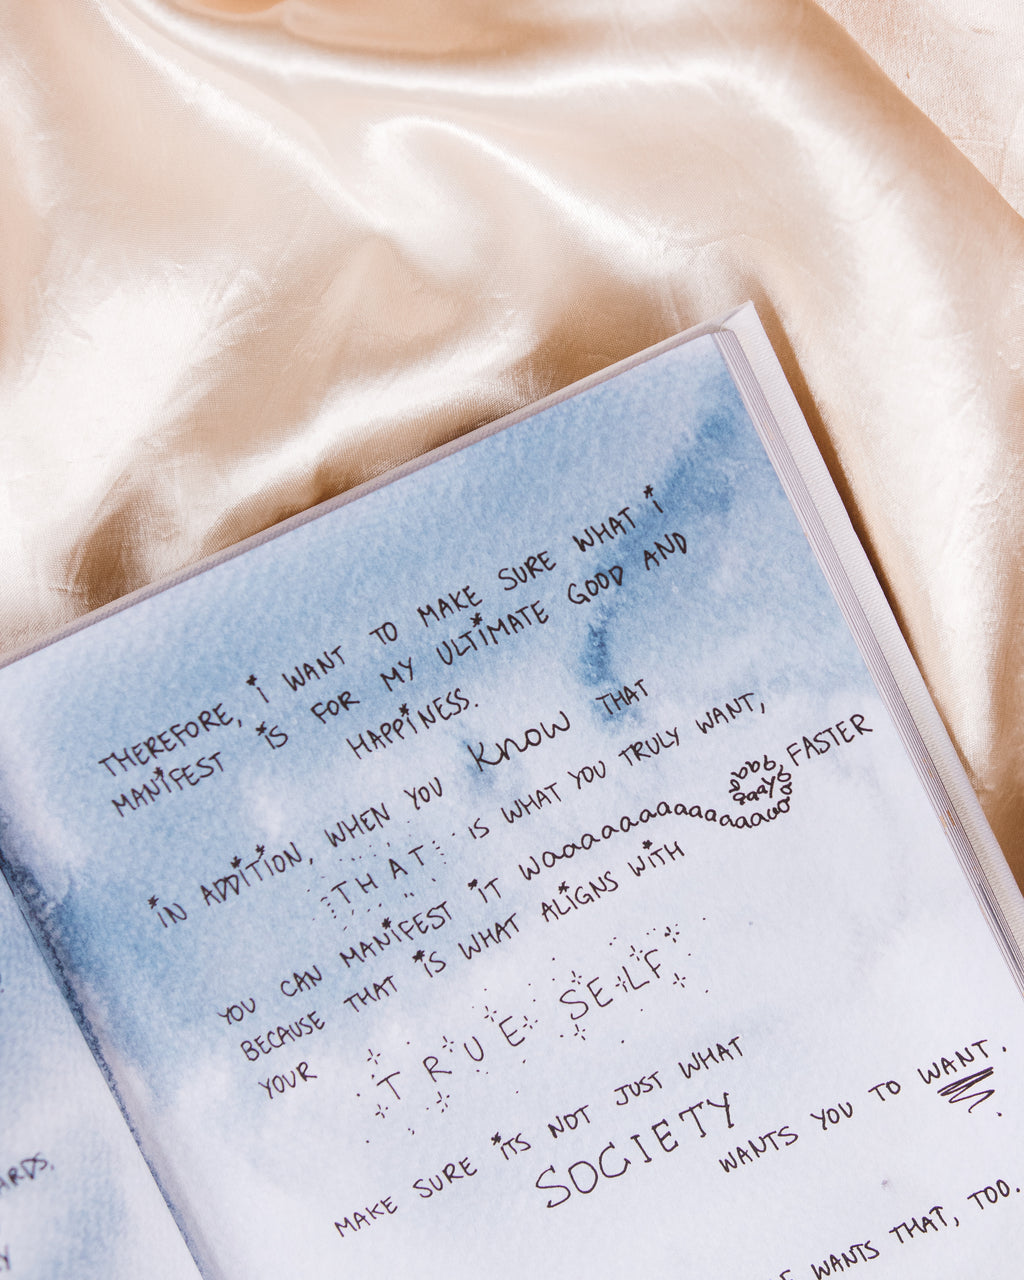 THEREFORE, i WANT TO MAKE SURE WHAT i
MANiFEST iS FOR MY ULTiMATE GOOD AND
HAPPiNESS.
iN ADDiTiON, WHEN YOU Know THAT
THAT iS WHAT YOU TRULY WANT,
YOU CAN MANiFEST iT waaaaaaaaaaaaaaaaaaaaaaaaaaay, FASTER
BECAUSE THAT iS WHAT ALiGNS WiTH
YOUR TRUE SELF.
MAKE SURE iTS NOT JUST WHAT
SOCIETY WANTS YOU TO WANT.
WANTS THAT, TOO.